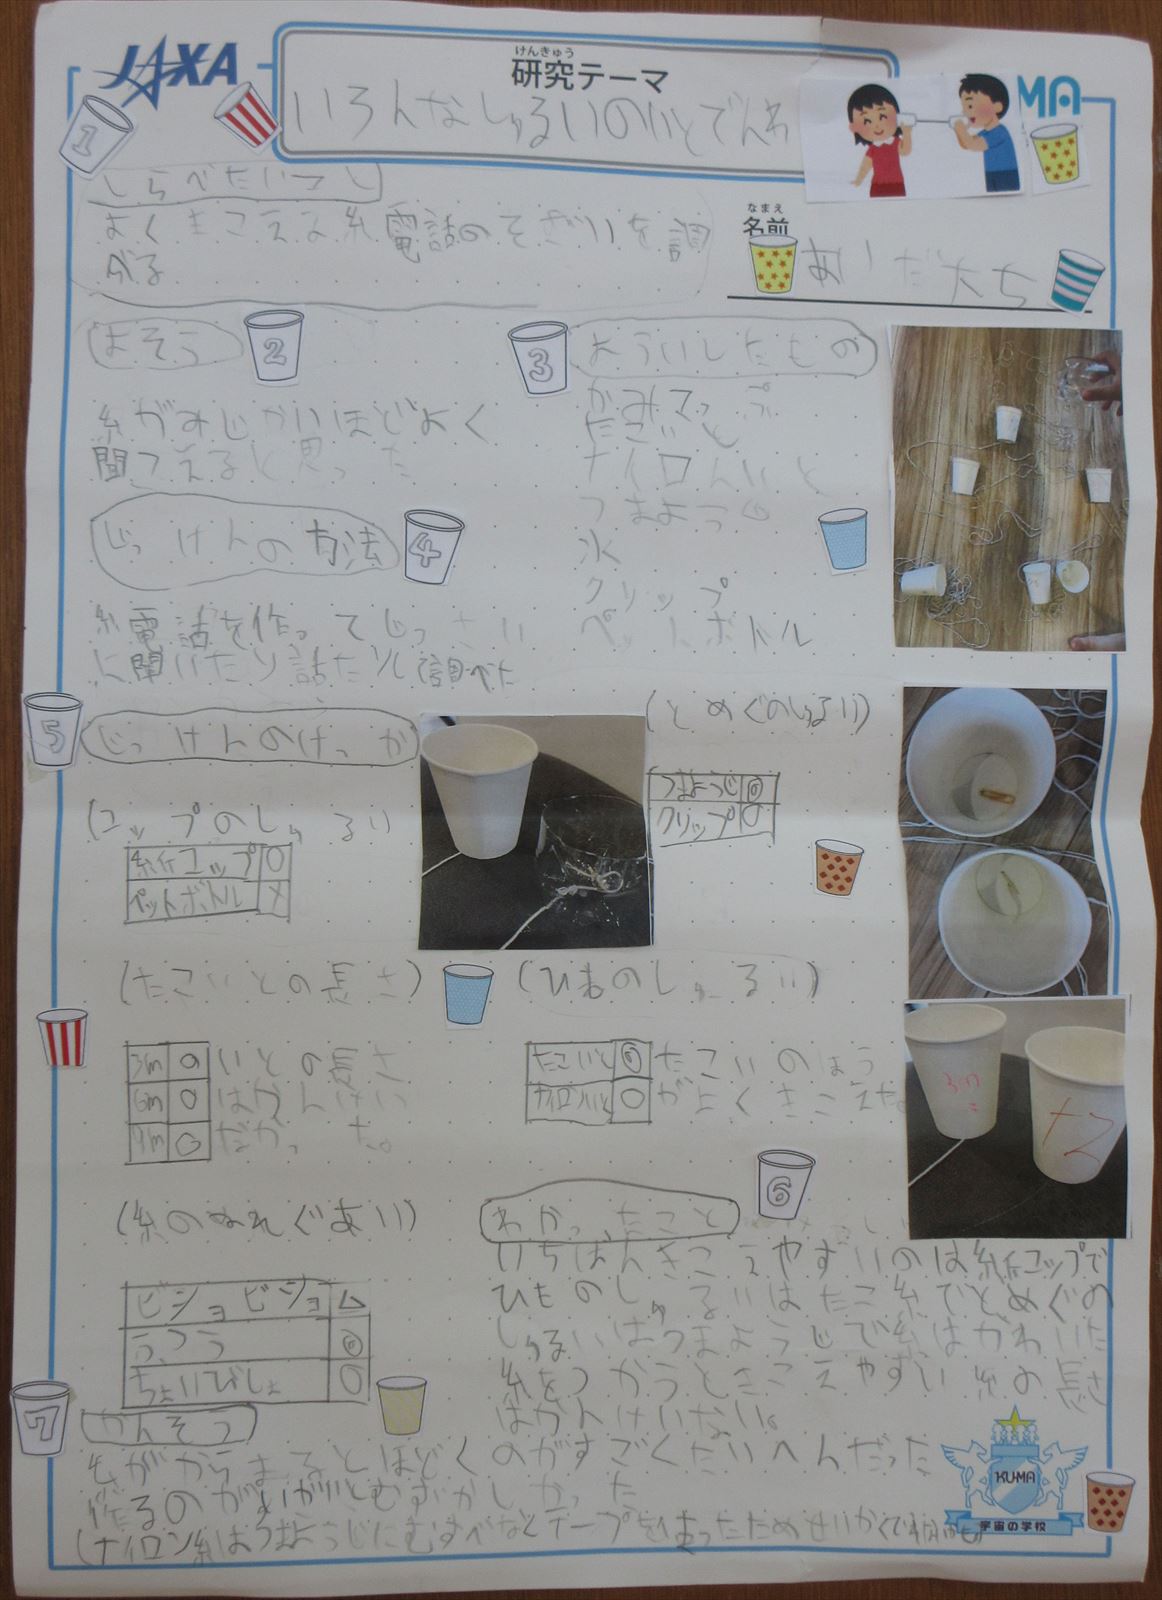 JAXA
けんきゅう
研究テーマ
いろんなしゅるいのいとでんわ
MA
1
しらべたいこと
よくきこえる糸電話のそざいを調
べる
なまえ
名前
あいだ大ち
よそう
2
糸がみじかいほどよく
聞こえると思った
3
よういしたもの
かみコップ
たこいと
ナイロんいと
つまようじ
水
クリップ
ペットボトル
じっけんの方法
4
糸電話を作ってじっさい
に聞いたり話たりし調べた
5
じっけんのけっか
(コップのしゅるい
紙コップ ○
ペットボトル ×
(とめぐのしゅるい)
つまようじ ◎
クリップ ○
(たこいとの長さ)
3m ○ いとの長さ
6m ○ はかんけい
9m ○ だかった。
(ひものしゅるい)
たこいと ◎ たこいのほう
ナイロンいと ○ がよくきこえや。
3m
(糸のぬれぐあい)
ビショビショ △
ふつう ◎
ちょいびしょ ○
わかったこと
6
いちばんきこえやすいのは紙コップで
ひものしゅるいはたこ糸でとめぐの
しゅるいはつまようじで糸はかわいた
糸をつかうときこえやすい糸の長さ
はかんけいない。
7
かんそう
糸がからまるとほどくのがすごくたいへんだった
作るのがいがいとむずかしかった
(ナイロン糸はつまようじにむすべなくテープをはったためせいかく
KUMA
宇宙の学校